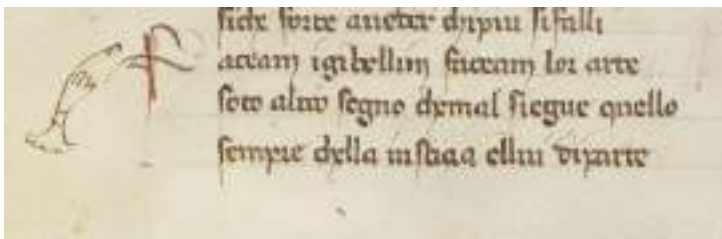 siche forte aueder chipiu sifalli
F acciam igibellinj facciam lor arte
soto altro segno chemal siegue quello
sempre chella iustiçia ellui diparte